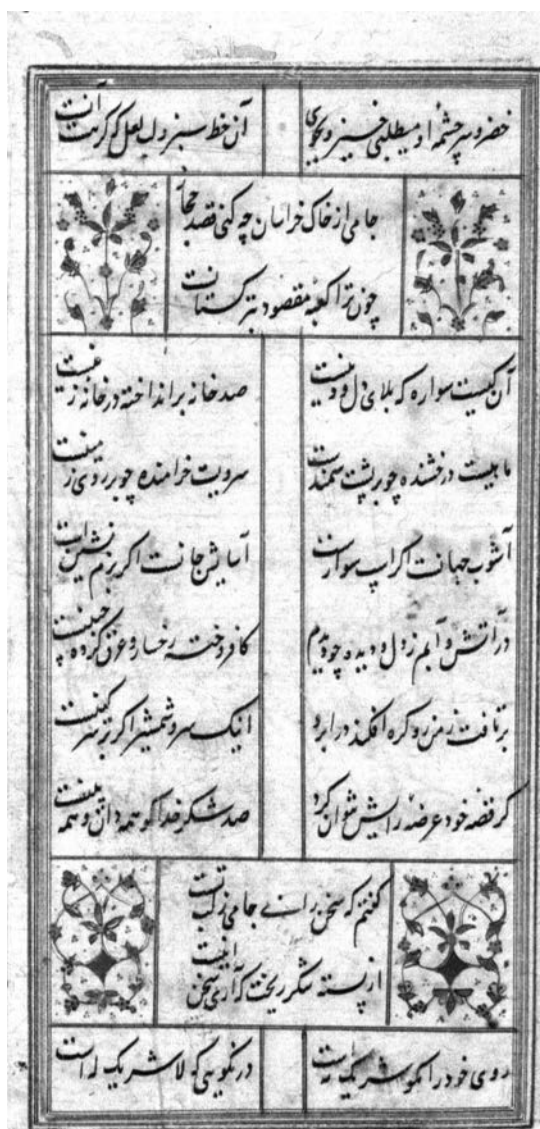 خضر و سرچشمه او میطلبی خیز و بجوی
آن خط سبز و لب لعل که گرد است آنست
جامی از خاک خراسان چه کنی قصد حجاز
چون ترا کعبه مقصود بترکستانست
آن کیست سواره که بلای دل و دینست
صد خانه برانداخته در خانه زینست
ماهیست درخشنده چو بر پشت سمندست
سرویست خرامنده چو بر روی زمینست
آشوب جهانست اگر اسب سوارست
آسایش جانست اگر بزم نشین است
در آتش و آبم ز دل و دیده چو دیدم
کافروخته رخسار و عرق کرده جبینست
برتافت ز من رو گره افکند در ابرو
اینک سر و شمشیر اگر بر سر کینست
گر قصه خود عرضه برایش نتوان کرد
صد شکر خدا کو همه دان و همه بینست
گفتم که سخن رانی جامی ز لبت
از پسته شکر ریخت که آری سخن اینست
روی خود را مگو شریک مه است
در نکویی که لا شریک له است